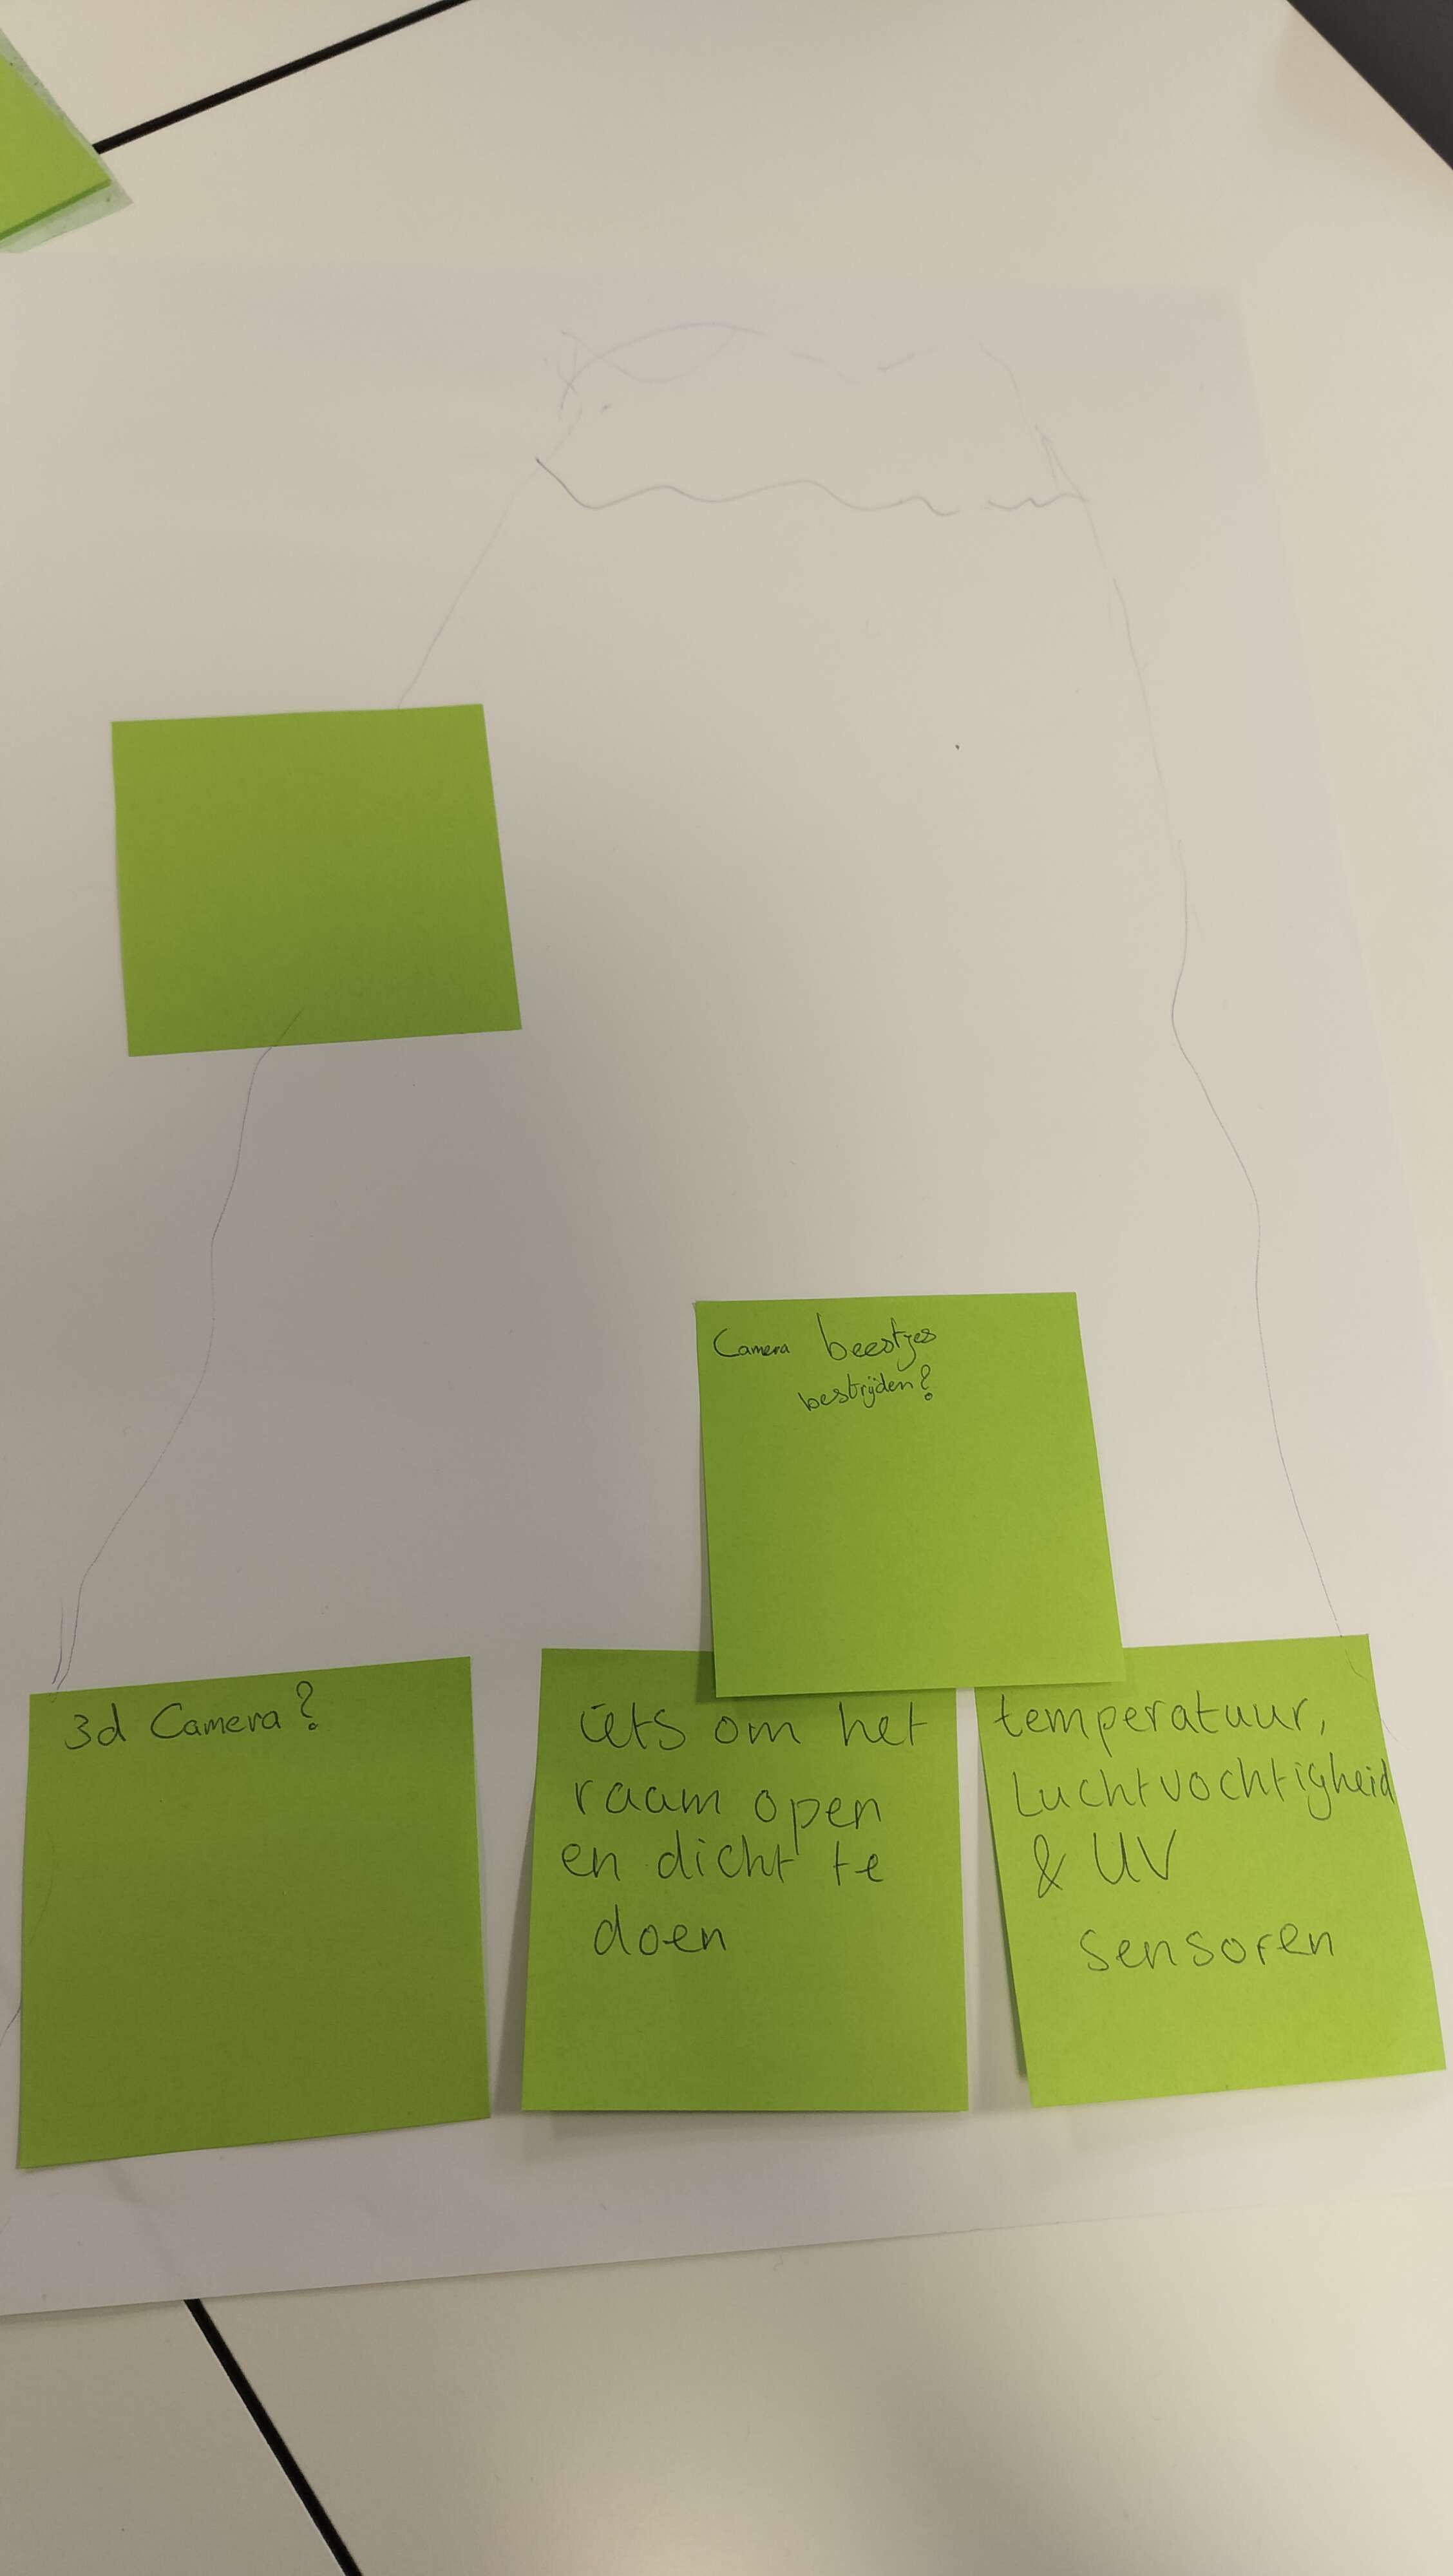 Camera beestjes
bestrijden?
3d Camera?
iets om het
raam open
en dicht te
doen
temperatuur,
Luchtvochtigheid
& UV
sensoren